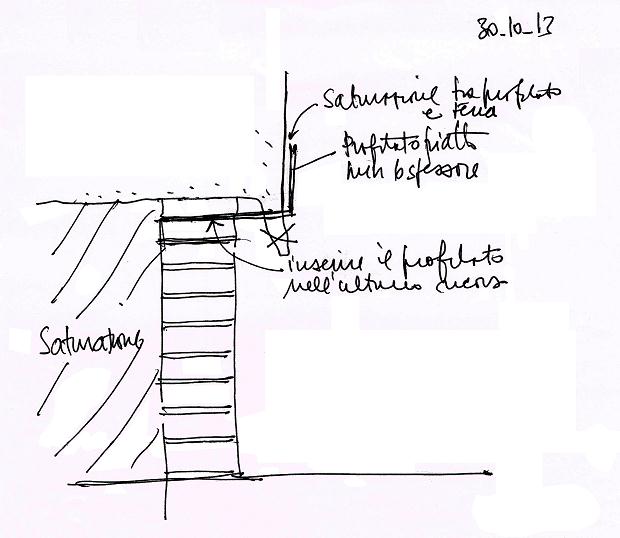 30_10_13
Saturazione tra profilato
e terra
Profilato piatto
mm 6 spessore
inserire il profilato
nell'ultimo
Saturazione